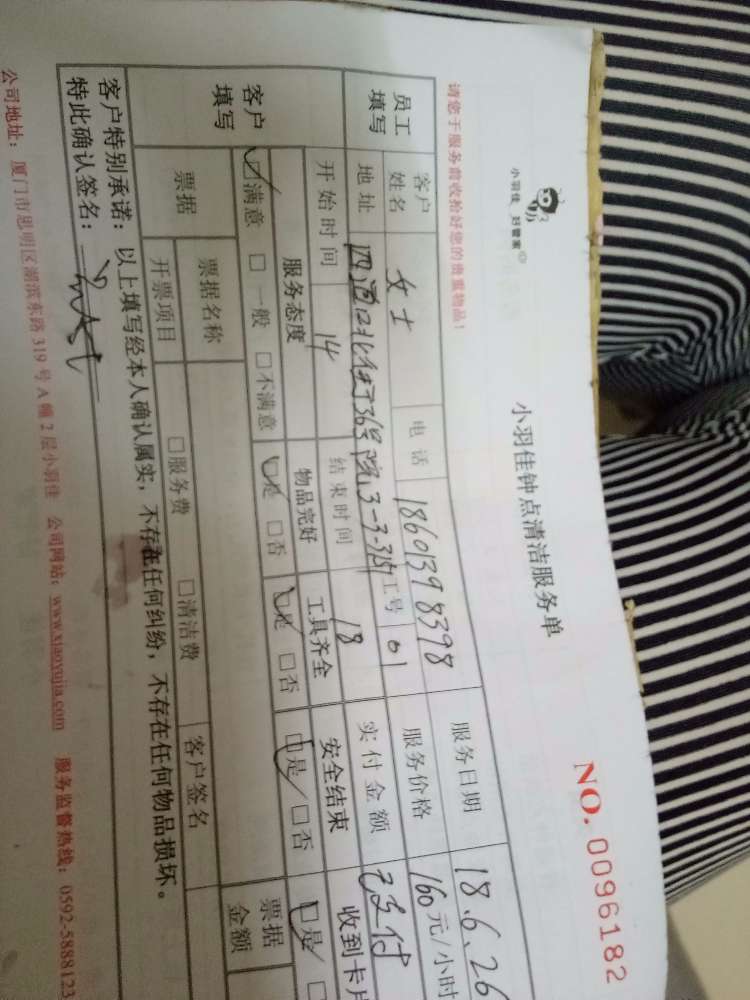 小羽佳 好管家
小羽佳钟点清洁服务单
NO. 0096182
请您于服务前收拾好您的贵重物品!
员工填写 客户姓名 女士 电话 18601398398 服务日期 18.6.26
地址 四道口北街363号院3-3-351 工号 01 服务价格 160元/小时
开始时间 14 结束时间 18 实付金额 已支付
客户填写 服务态度 物品完好 工具齐全 安全结束 收到卡片
☑满意 □一般 □不满意 ☑是 □否 ☑是 □否 ☑是 □否 ☑是 □
票据 票据名称 □服务费 □清洁费 客户签名 票据金额
开票项目
客户特别承诺: 以上填写经本人确认属实, 不存在任何纠纷, 不存在任何物品损坏。
特此确认签名:
公司地址: 厦门市思明区湖滨东路319号A幢2层小羽佳 公司网站: www.xiaoyujia.com 服务监督热线: 0592-5888123